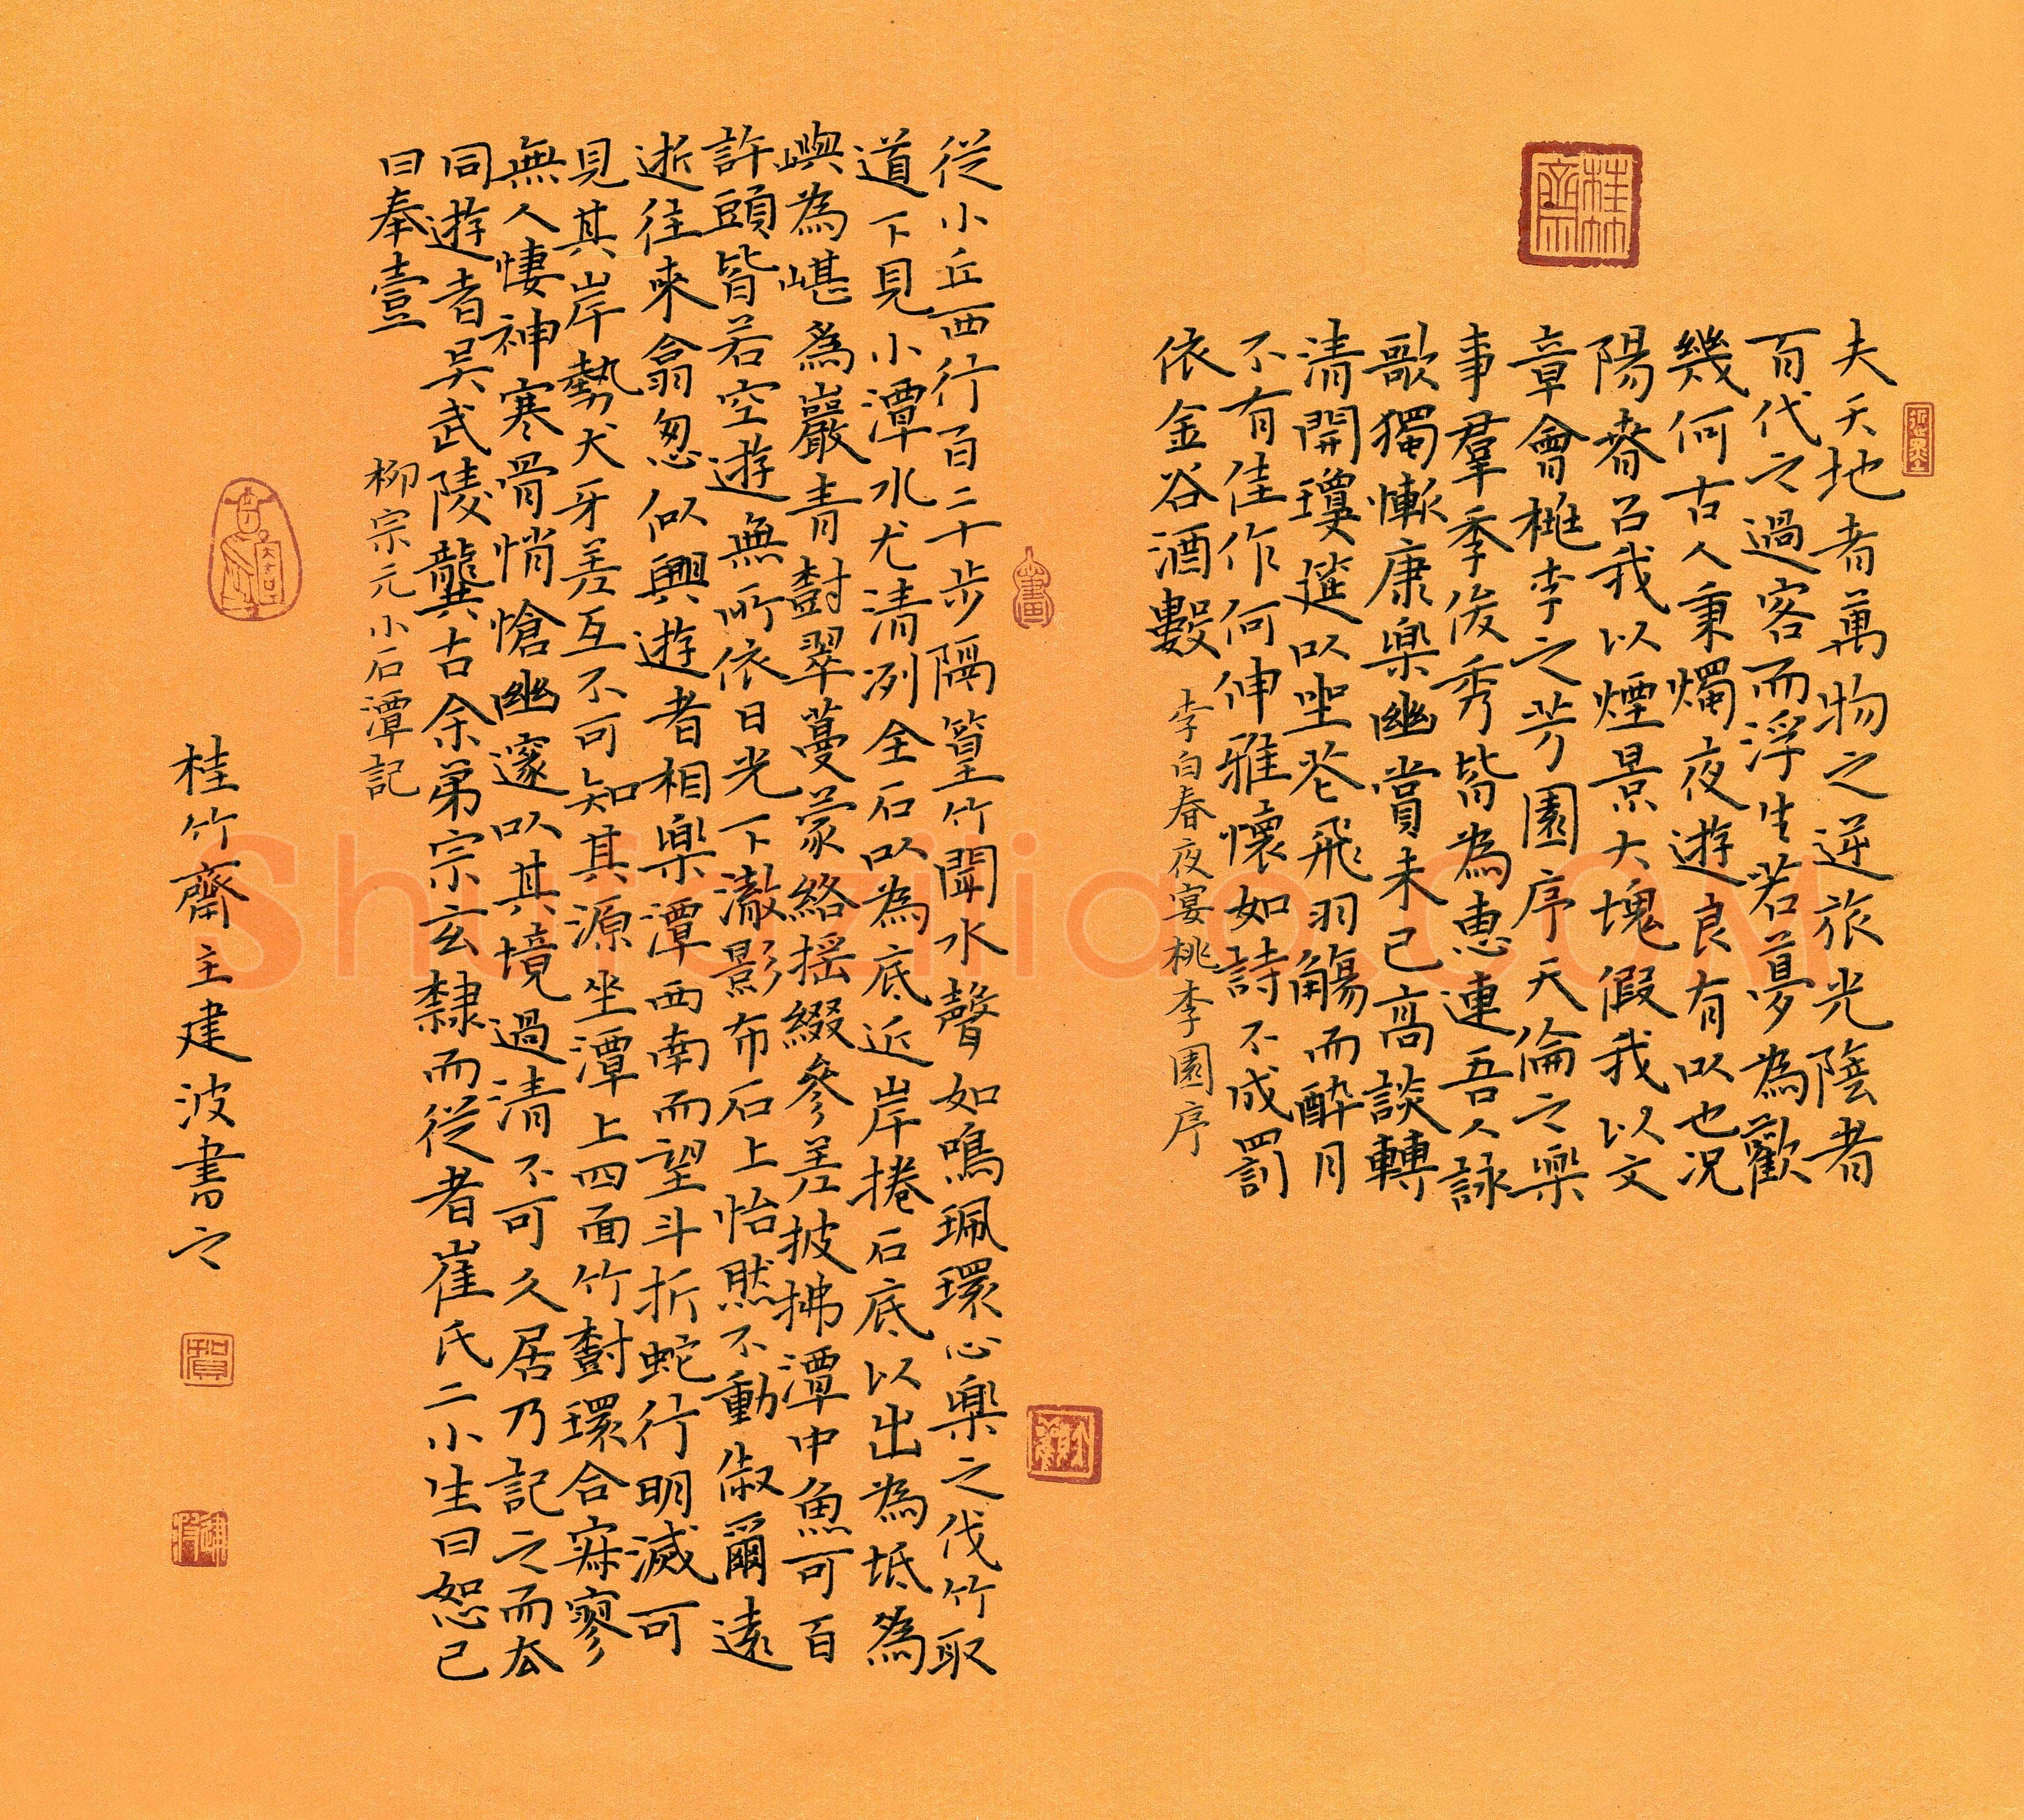 夫天地者萬物之逆旅光陰者
百代之過客而浮生若夢為歡
幾何古人秉燭夜遊良有以也況
陽春召我以煙景大塊假我以文
章會桃李之芳園序天倫之樂
事羣季俊秀皆為惠連吾人詠
歌獨慚康樂幽賞未已高談轉
清開瓊筵以坐花飛羽觴而醉月
不有佳作何伸雅懷如詩不成罰
依金谷酒數
李白春夜宴桃李園序
從小丘西行百二十步隔篁竹聞水聲如鳴珮環心樂之伐竹取
道下見小潭水尤清冽全石以為底近岸捲石底以出為坻為
嶼為嵁為巖青樹翠蔓蒙絡搖綴參差披拂潭中魚可百
許頭皆若空遊無所依日光下澈影布石上怡然不動俶爾遠
逝往來翕忽似與遊者相樂潭西南而望斗折蛇行明滅可
見其岸勢犬牙差互不可知其源坐潭上四面竹樹環合寂寥
無人悽神寒骨悄愴幽邃以其境過清不可久居乃記之而去
同遊者吳武陵龔古余弟宗玄隸而從者崔氏二小生曰恕己
曰奉壹
柳宗元小石潭記
桂竹齋主建波書之
桂竹齋
Shufaziliao.COM